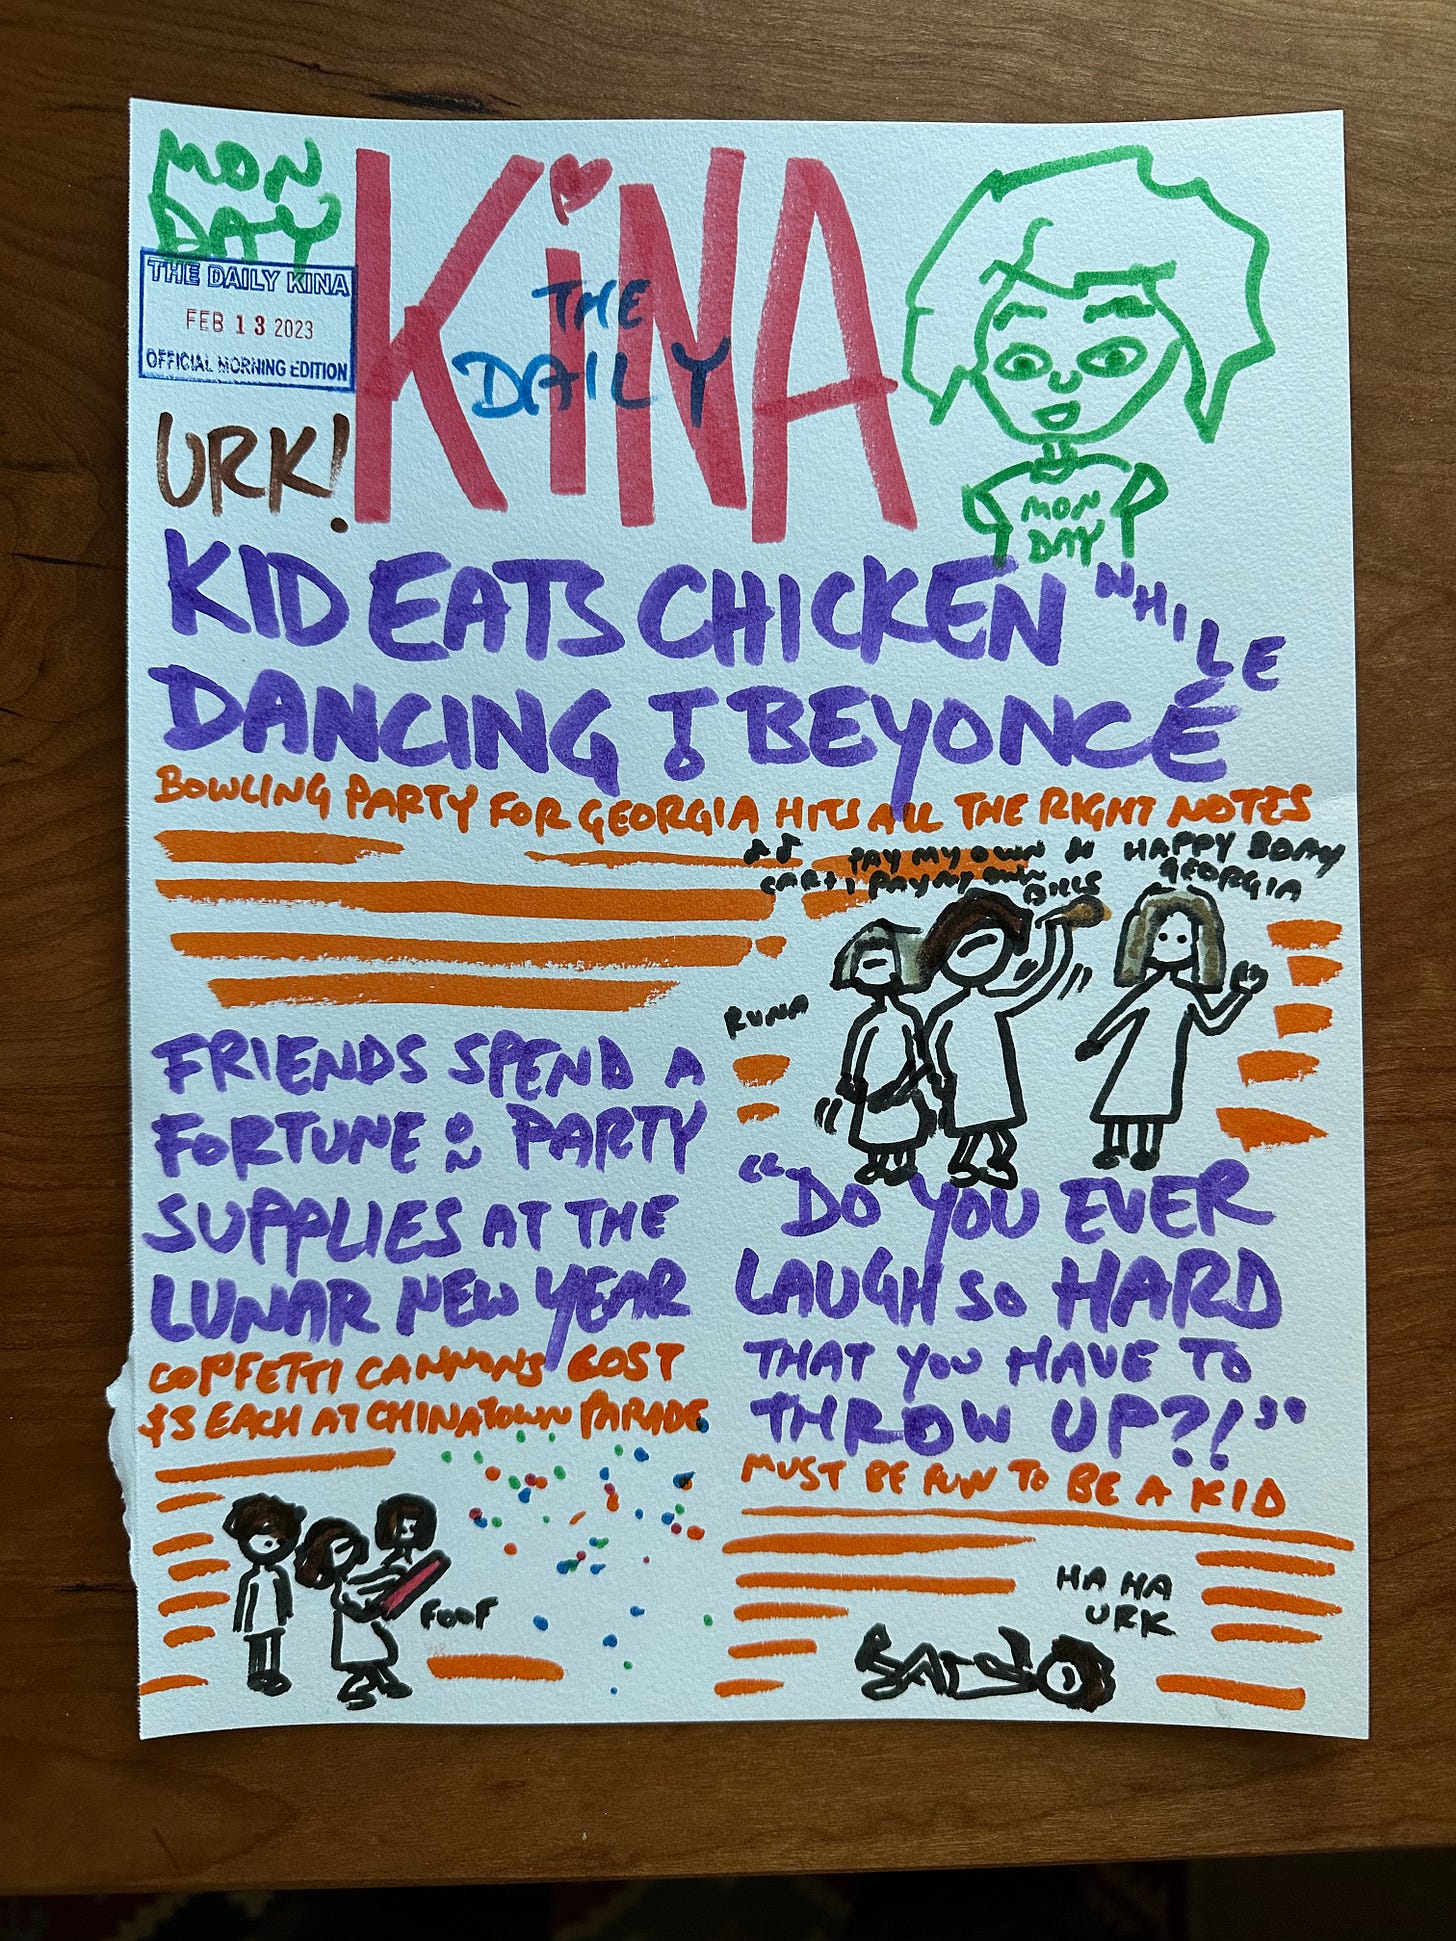 MON
DAY
THE DAILY KINA
FEB 13 2023
OFFICIAL MORNING EDITION
URK!
KiNA
THE
DAILY
MON
DAY
KID EATS CHICKEN WHILE
DANCING TO BEYONCÉ
BOWLING PARTY FOR GEORGIA HITS ALL THE RIGHT NOTES
PAY MY OWN
CAR + I PAY MY OWN
BILLS
HAPPY BDAY
GEORGIA
RUNA
FRIENDS SPEND A
FORTUNE ON PARTY
SUPPLIES AT THE
LUNAR NEW YEAR
CONFETTI CANNONS COST
$5 EACH AT CHINATOWN PARADE
FOOF
"DO YOU EVER
LAUGH SO HARD
THAT YOU HAVE TO
THROW UP?!"
MUST BE FUN TO BE A KID
HA HA
URK